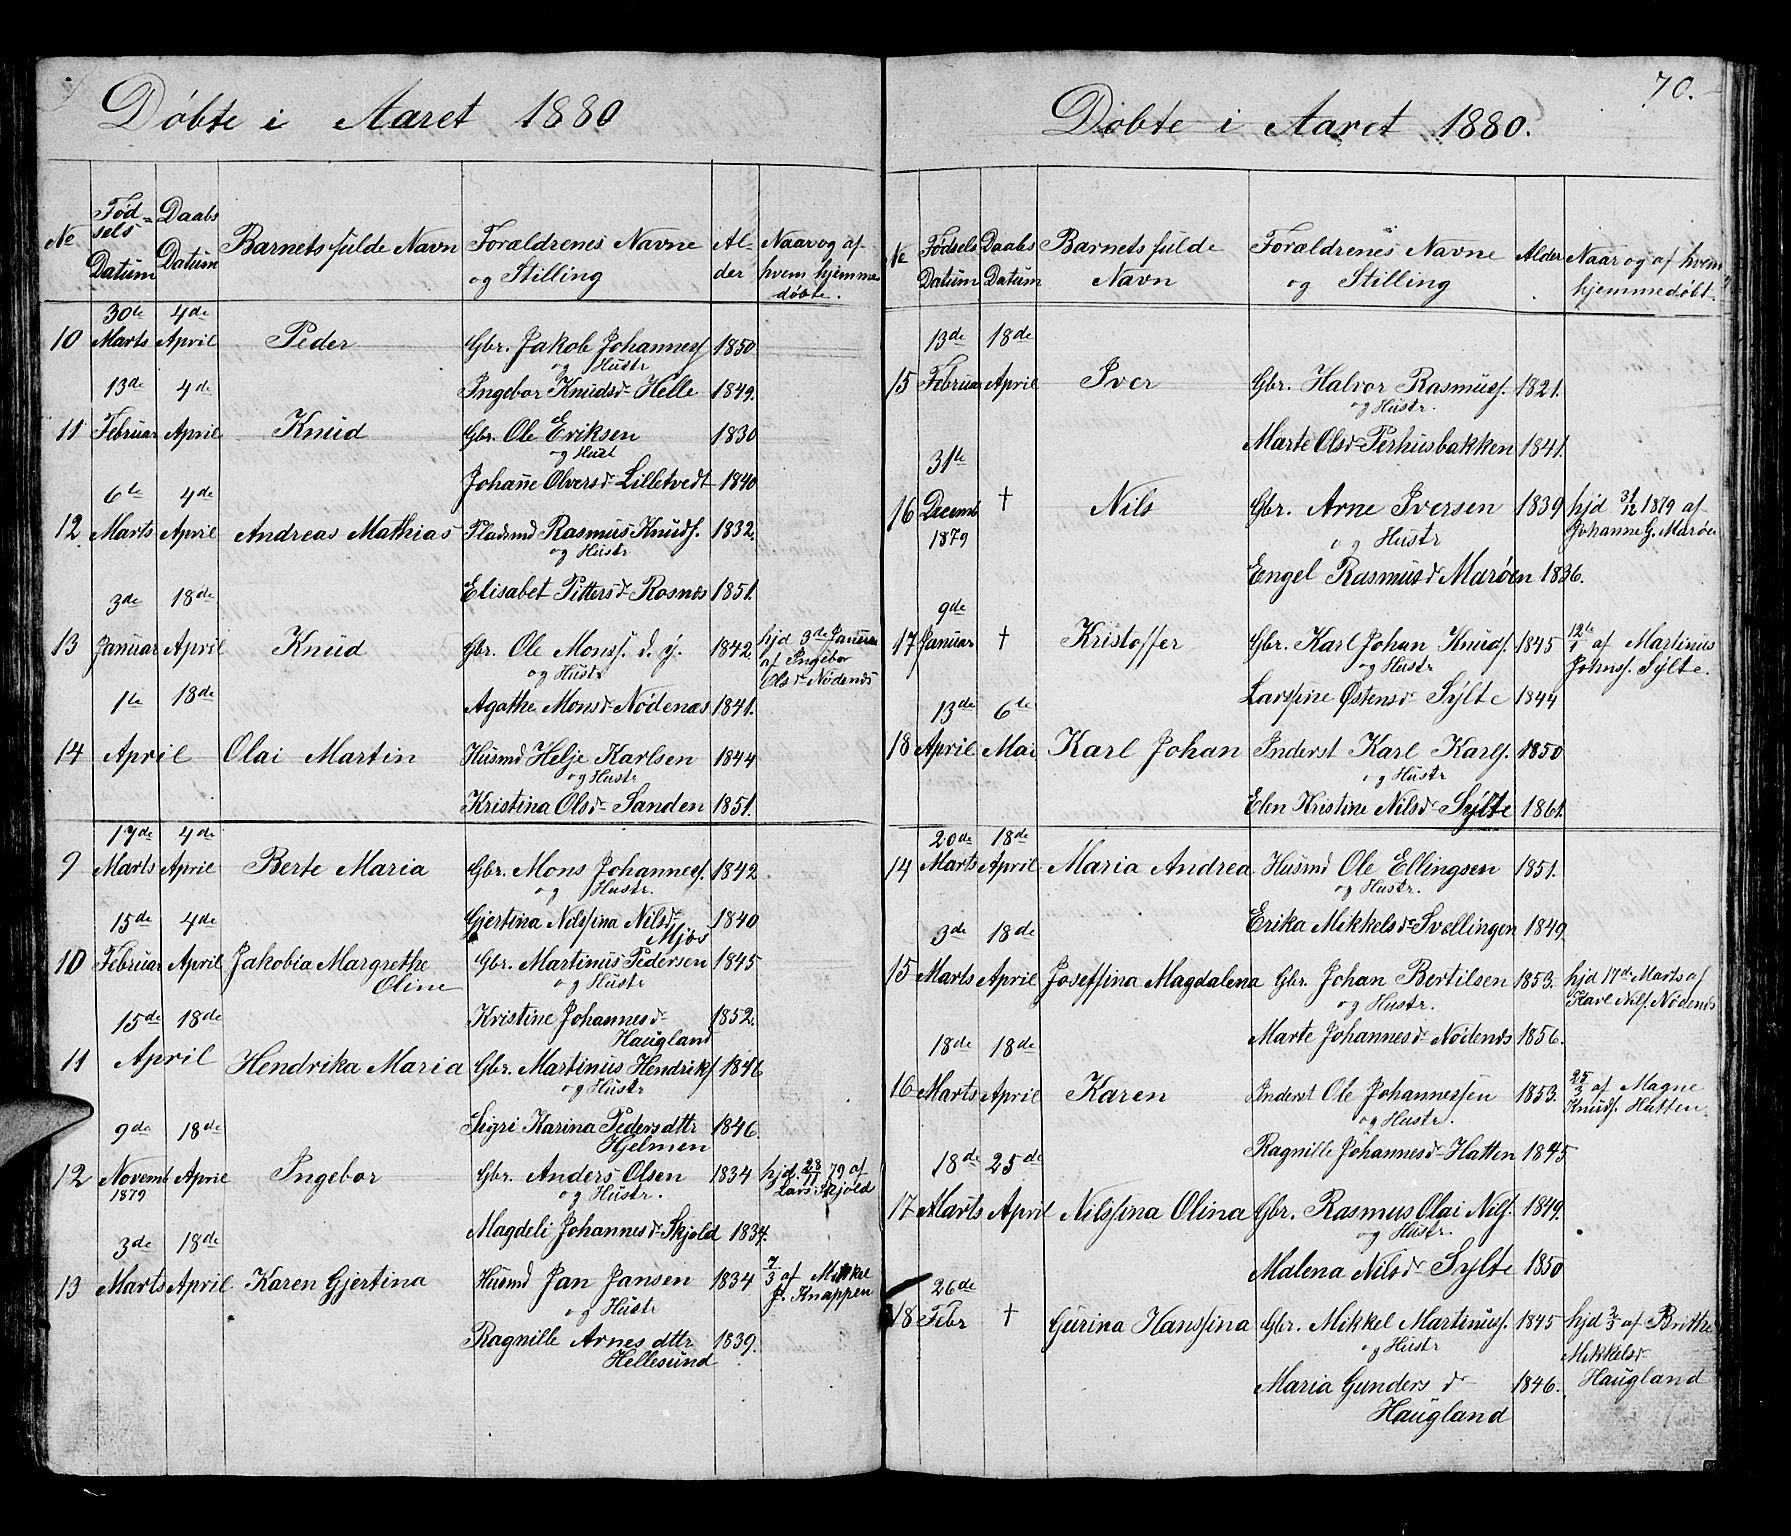 Døbte i Aaret 1880
No
Fød-
sels
Datum
Daabs
Datum
Barnets fulde Navn
Forældrenes Navne
og Stilling
Al-
der
Naar og af
hvem hjemme
døbte.
30te 4de
10 Marts April Peder Gbr. Jakob Johanness 1850
og Hustr
13de 4de Ingebor Knudsdr Helle 1849.
11 Februar April Knud Gbr. Ole Eriksen 1830
og Hust
6te 4de Johanne Olversdr Lilletvedt 1840
12 Marts April Andreas Mathias Pladsmd Rasmus Knuds. 1832.
og Hustr
Elisabet Pittersdr Rosnæs 1851.
3de 18de
13 Januar April Knud Gbr. Ole Monss. d. y. 1842. hjd 3de Januar
og Hustr af Ingebor
Olsdr Nødenæs
1te 18de Agathe Monsdr Nødenæs 1841.
14 April Olai Martin Husmd Helje Karlsen 1844
og Hustr
Kristina Olsdr Sanden 1851.
17de 4de
9 Marts April Berte Maria Gbr. Mons Johanness. 1842
og Hustr.
15de 4de Gjertina Nilssina Nilsdr 1840
Mjøs
10 Februar April Jakobia Margrethe Gbr. Martinus Pedersen 1845
Oline og Hustr
15de 18de Kristine Johannesdr 1852.
Haugland
11 April Hendrika Maria Gbr. Martinus Hendriks 1846
og Hustr
9de 18de Sigri Karina Pedersdttr 1846.
Hjelmen
12 Novemb April Ingebor Gbr. Anders Olsen 1834 hjd. 28/11 79 af
1879 og Hustr. Lars Skjold
3de 18de Magdeli Johannesdr Skjold 1834.
13 Marts April Karen Gjertina Husmd Jan Jansen 1834 7/3 af Mikkel
og Hustr J. Knappen
Ragnille Arnesdttr 1839.
Hellesund
70.
Døbte i Aaret 1880.
No
Fødsels
Datum
Daabs
Datum
Barnets fulde
Navn
Forældrenes Navne
og Stilling
Alder
Naar og af hvem
hjemmedøbt.
13de 18de
15 Februar April Iver Gbr. Halvor Rasmuss. 1821.
og Hustr.
Marte Olsdr Perhusbakken 1841.
31te
16 Decemb † Nils Gbr. Arne Iversen 1839 hjd 31/12 1879 af
1879 og Hustr Johanne G. Marøen
Engel Rasmusdr Marøen 1836.
9de
17 Januar † Kristoffer Gbr. Karl Johan Knuds. 1845 12te/1 af Martinus
og Hustr Johns. Sylte.
13de 6te Larssine Østensdr Sylte 1844
18 April Mai Karl Johan Inderst Karl Karls. 1850
og Hustr
Elen Kristine Nilsdr Sylte 1861.
20de 18de
14 Marts April Maria Andrea Husmd Ole Ellingsen 1851.
og Hustr.
3de 18de Erika Mikkelsdr Svellingen 1849
15 Marts April Joseffina Magdalena Gbr. Johan Bertilsen 1853. hjd 17de Marts af
og Hustr. Karl Nils. Nødenæs
18de 18de Marte Johannesdr Nødenæs 1856.
16 Marts April Karen Inderst Ole Johannessen 1853. 25/3 af Magne
og Hustr. Knuds. Hatten.
18de 25de Ragnille Johannesdr Hatten 1845
17 Marts April Nilssina Olina Gbr. Rasmus Olai Nils. 1849.
og Hustr.
26de Malena Nilsdr Sylte 1850
18 Febr † Gurina Hanssina Gbr. Mikkel Martinuss. 1845 hjd 2/3 af Brithe
og Hustr Mikkelsdr
Maria Gundersdr 1846. Haugland
Haugland